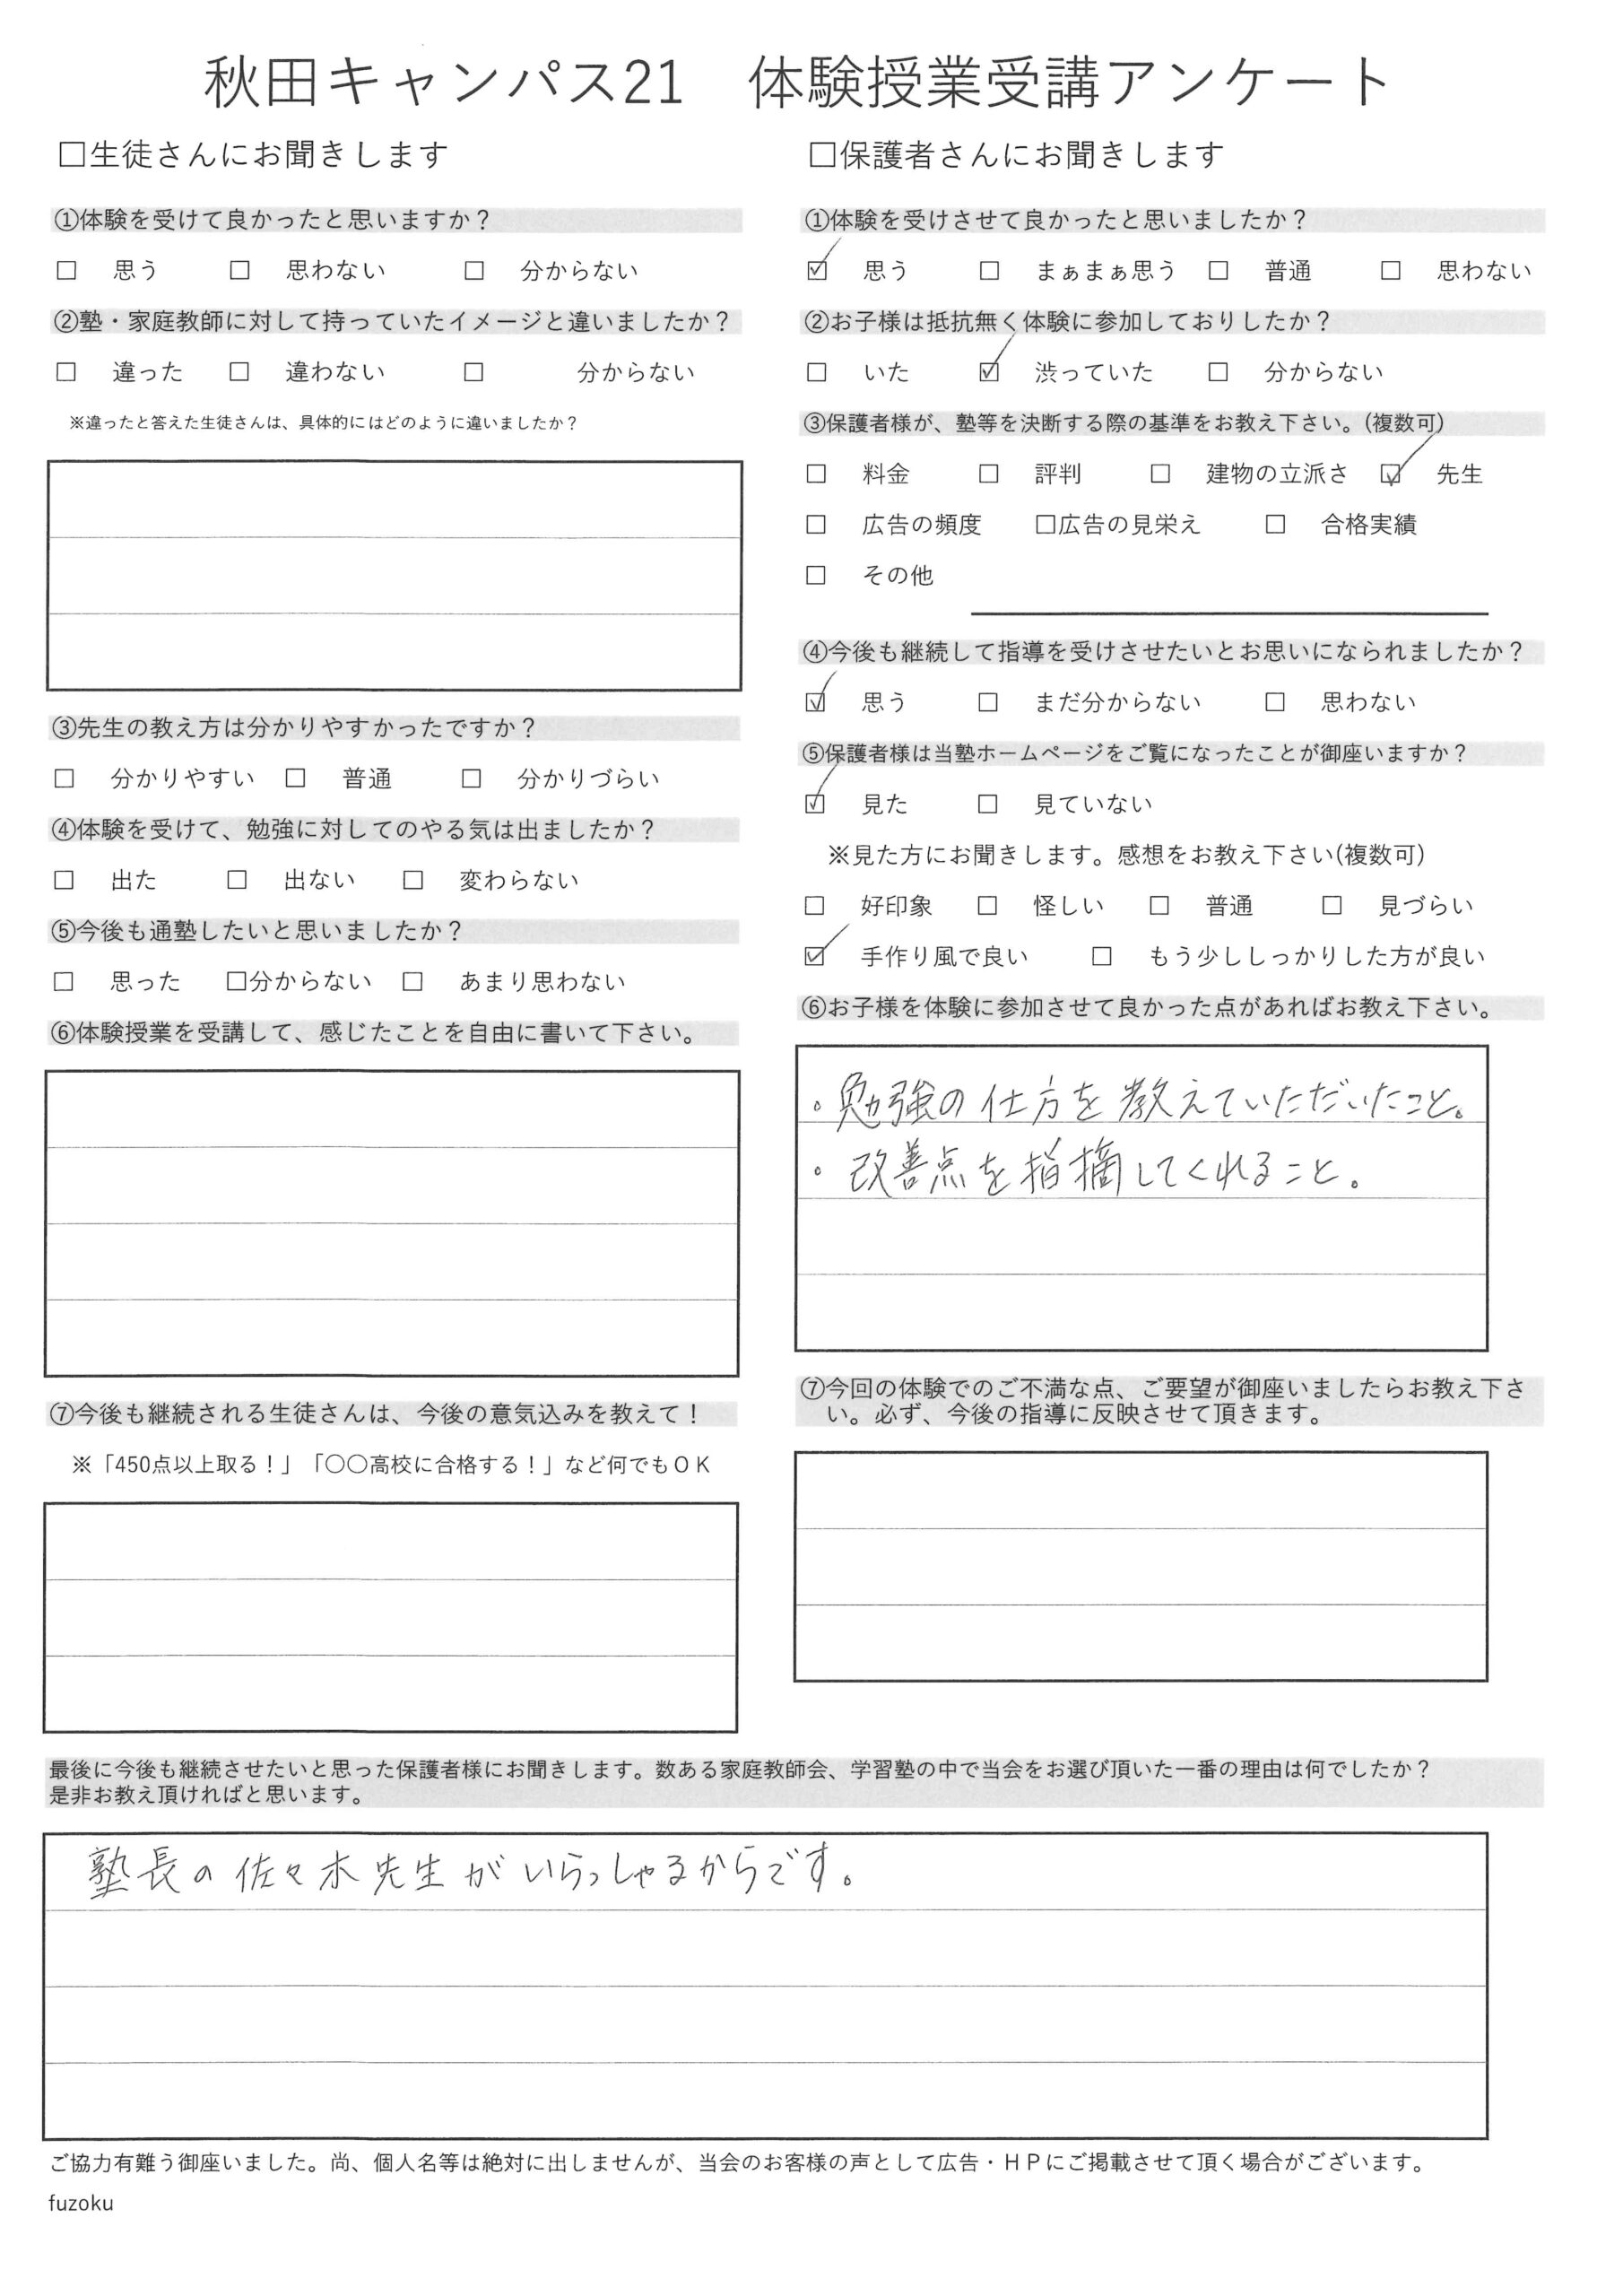 秋田キャンパス21　体験授業受講アンケート
□生徒さんにお聞きします
①体験を受けて良かったと思いますか？
□　思う　□　思わない　□　分からない
②塾・家庭教師に対して持っていたイメージと違いましたか？
□　違った　□　違わない　□　分からない
※違ったと答えた生徒さんは、具体的にはどのように違いましたか？
③先生の教え方は分かりやすかったですか？
□　分かりやすい　□　普通　□　分かりづらい
④体験を受けて、勉強に対してのやる気は出ましたか？
□　出た　□　出ない　□　変わらない
⑤今後も通塾したいと思いましたか？
□　思った　□分からない　□　あまり思わない
⑥体験授業を受講して、感じたことを自由に書いて下さい。
⑦今後も継続される生徒さんは、今後の意気込みを教えて！
※「450点以上取る！」「〇〇高校に合格する！」など何でもＯＫ
□保護者さんにお聞きします
①体験を受けさせて良かったと思いましたか？
☑　思う　□　まぁまぁ思う　□　普通　□　思わない
②お子様は抵抗無く体験に参加しておりしたか？
□　いた　☑　渋っていた　□　分からない
③保護者様が、塾等を決断する際の基準をお教え下さい。(複数可)
□　料金　□　評判　□　建物の立派さ　☑　先生
□　広告の頻度　□広告の見栄え　□　合格実績
□　その他
④今後も継続して指導を受けさせたいとお思いになられましたか？
☑　思う　□　まだ分からない　□　思わない
⑤保護者様は当塾ホームページをご覧になったことが御座いますか？
☑　見た　□　見ていない
※見た方にお聞きします。感想をお教え下さい(複数可)
□　好印象　□　怪しい　□　普通　□　見づらい
☑　手作り風で良い　□　もう少ししっかりした方が良い
⑥お子様を体験に参加させて良かった点があればお教え下さい。
・勉強の仕方を教えていただいたこと。
・改善点を指摘してくれること。
⑦今回の体験でのご不満な点、ご要望が御座いましたらお教え下さ
い。必ず、今後の指導に反映させて頂きます。
最後に今後も継続させたいと思った保護者様にお聞きします。数ある家庭教師会、学習塾の中で当会をお選び頂いた一番の理由は何でしたか？
是非お教え頂ければと思います。
塾長の佐々木先生がいらっしゃるからです。
ご協力有難う御座いました。尚、個人名等は絶対に出しませんが、当会のお客様の声として広告・ＨＰにご掲載させて頂く場合がございます。
fuzoku